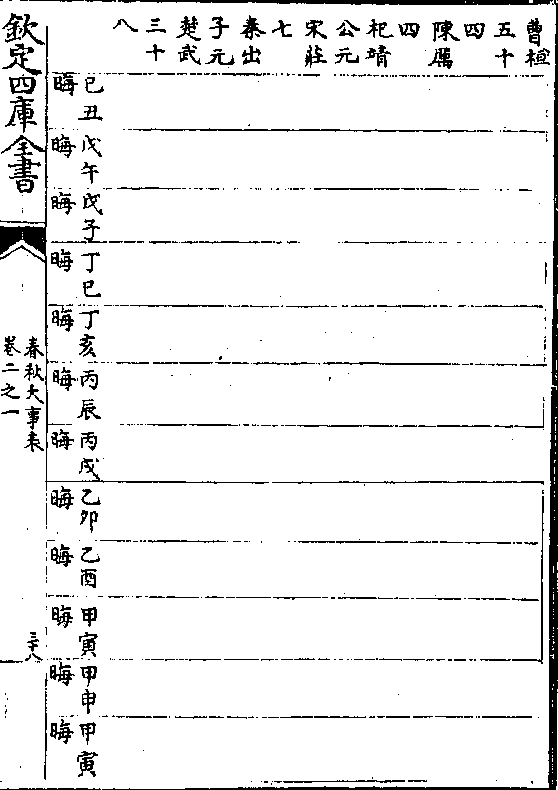 曹桓
五十
四
陳厲
四
杞靖
公元
宋莊
七
秦出
子元
楚武
三十
八
己丑
晦
戊午
晦
戊子
晦
丁巳
晦
丁亥
晦
丙辰
晦
丙戌
晦
乙卯
晦
乙酉
晦
甲寅
晦
甲申
晦
甲寅
晦
欽定四庫全書
春秋大事表
卷二之一
三十八